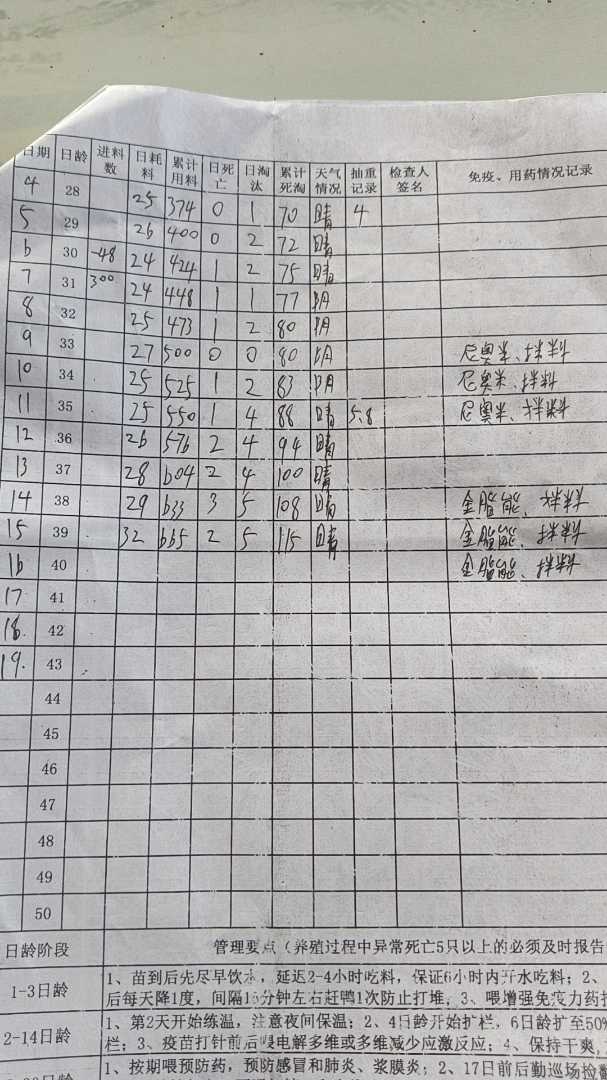 日期 日龄 进料数 日耗料 累计用料 日死亡 日淘汰 累计死淘 天气情况 抽重记录 检查人签名 免疫、用药情况记录
4 28 25 374 0 1 70 晴 4
5 29 26 400 0 2 72 晴
6 30 -48 24 424 1 2 75 晴
7 31 300 24 448 1 1 77 阴
8 32 25 473 1 2 80 阴
9 33 27 500 0 0 80 阴 尼奥米、拌料
10 34 25 525 1 2 83 阴 尼奥米、拌料
11 35 25 550 1 4 88 晴 5.8 尼奥米、拌料
12 36 26 576 2 4 94 晴
13 37 28 604 2 4 100 晴
14 38 29 633 3 5 108 晴 金脂能、拌料
15 39 32 665 2 5 115 晴 金脂能、拌料
16 40 金脂能、拌料
17 41
18. 42
19. 43
44
45
46
47
48
49
50
日龄阶段 管理要点(养殖过程中异常死亡5只以上的必须及时报告
1-3日龄 1、苗到后先尽早饮水，延迟2-4小时吃料，保证6小时内开水吃料；2、
后每天降1度，间隔15分钟左右赶鸭1次防止打堆，3、喂增强免疫力药
2-14日龄 1、第2天开始练温，注意夜间保温；2、4日龄开始扩栏，6日龄扩至50%
栏；3、疫苗打针前后喂电解多维或多维减少应激反应；4、保持干爽，
1、按期喂预防药，预防感冒和肺炎、浆膜炎；2、17日前后勤巡场检